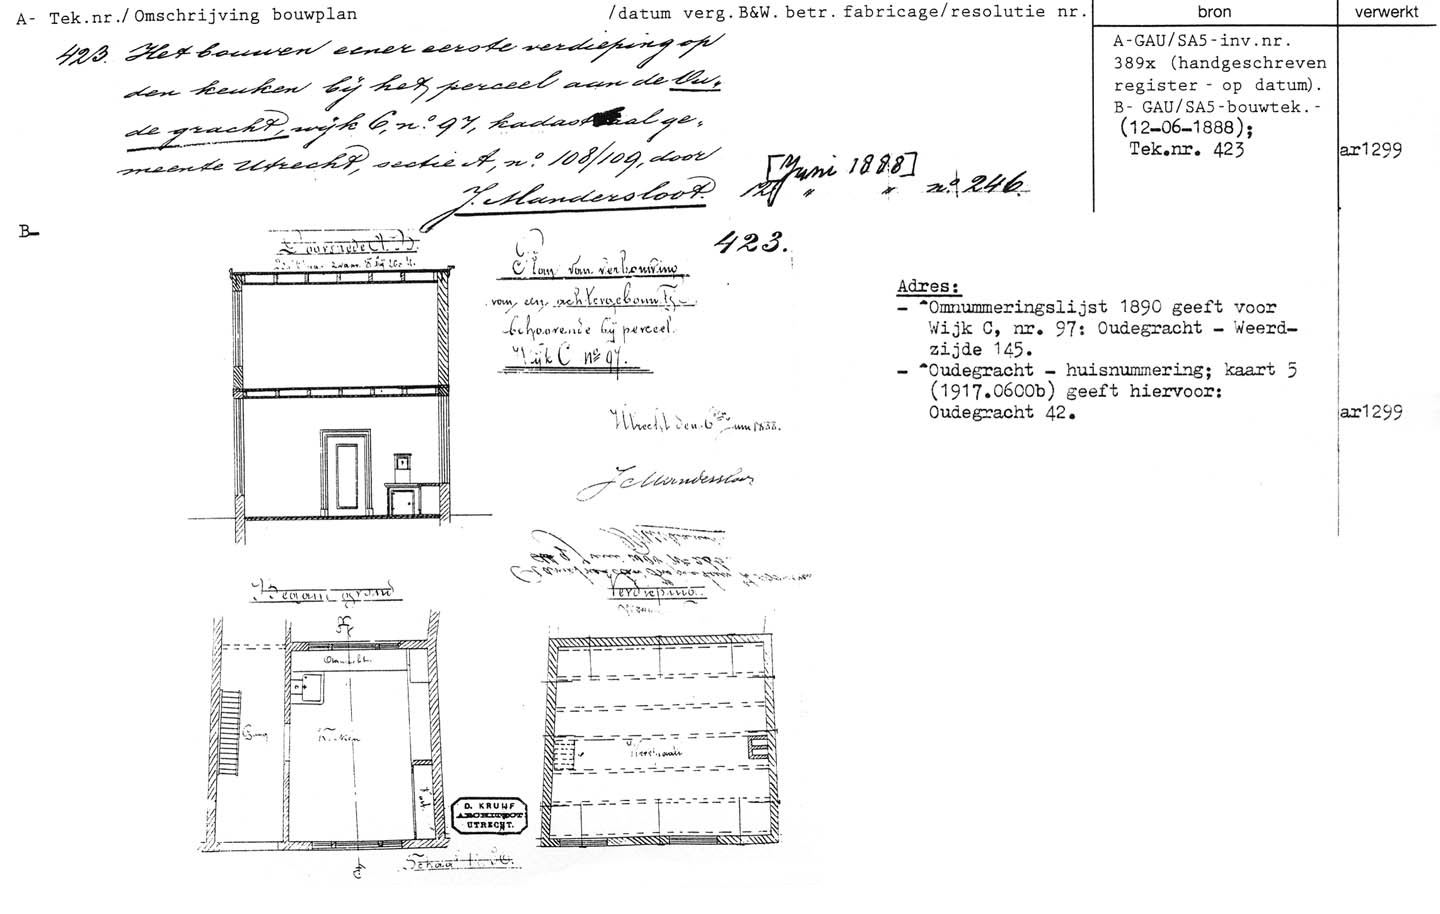 A- Tek.nr./Omschrijving bouwplan /datum verg.B&W. betr. fabricage/resolutie nr. bron verwerkt
423. Het bouwen eener eerste verdieping op
den keuken bij het perceel aan de Ou-
de gracht, wijk C, no. 97, kadastraal ge-
meente Utrecht, sectie A, no. 108/109, door
J. Mandersloot.
[Juni 1888]
12 " " no. 246.
A-GAU/SA5-inv.nr.
389x (handgeschreven
register - op datum).
B- GAU/SA5-bouwtek.-
(12-06-1888);
Tek.nr. 423
ar1299
B-
Doorsnede A.B.
423.
Plan van verbouwing
van een achtergebouwtje
behoorende bij perceel
Wijk C No 97.
Utrecht den 6 Juni 1888.
J Mandersloot
Adres:
- ^Omnummeringslijst 1890 geeft voor
Wijk C, nr. 97: Oudegracht - Weerd-
zijde 145.
- ^Oudegracht - huisnummering; kaart 5
(1917.0600b) geeft hiervoor:
Oudegracht 42.
ar1299
Begane grond
Verdieping
Gang
Keuken
D. KRUIJF
ARCHITECT
UTRECHT.
Schaal